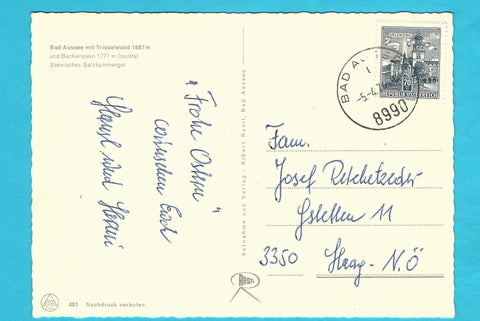 Bad Aussee mit Trisselwand 1687 m
und Backenstein 1771 m (rechts)
Steirisches Salzkammergut
"Frohe Ostern"
wünschen Euch
Hansl und Hanni
Aufnahme und Verlag: Albert Rastl, Bad Aussee
BAD AU
8990
REPUBLIK ÖSTERREICH
Fam.
Josef Reichetzeder
Gstetten 11
3350 Haag - N.Ö
RASTL
401 Nachdruck verboten.